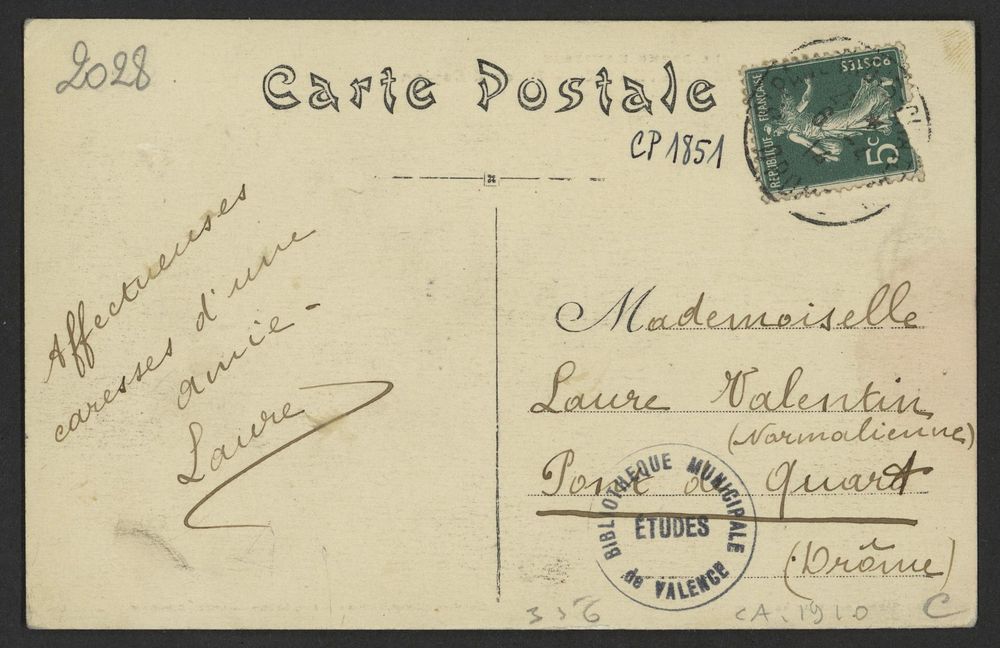 2028
Carte Postale
CP 1851
POSTES
REPUBLIQUE FRANÇAISE
5c
Affectueuses
caresses d'une
amie -
Laure
Mademoiselle
Laure Valentin
(Normalienne)
Pont de Quart
(Drôme)
BIBLIOTHEQUE MUNICIPALE
ÉTUDES
de VALENCE
356
CA. 1910
C